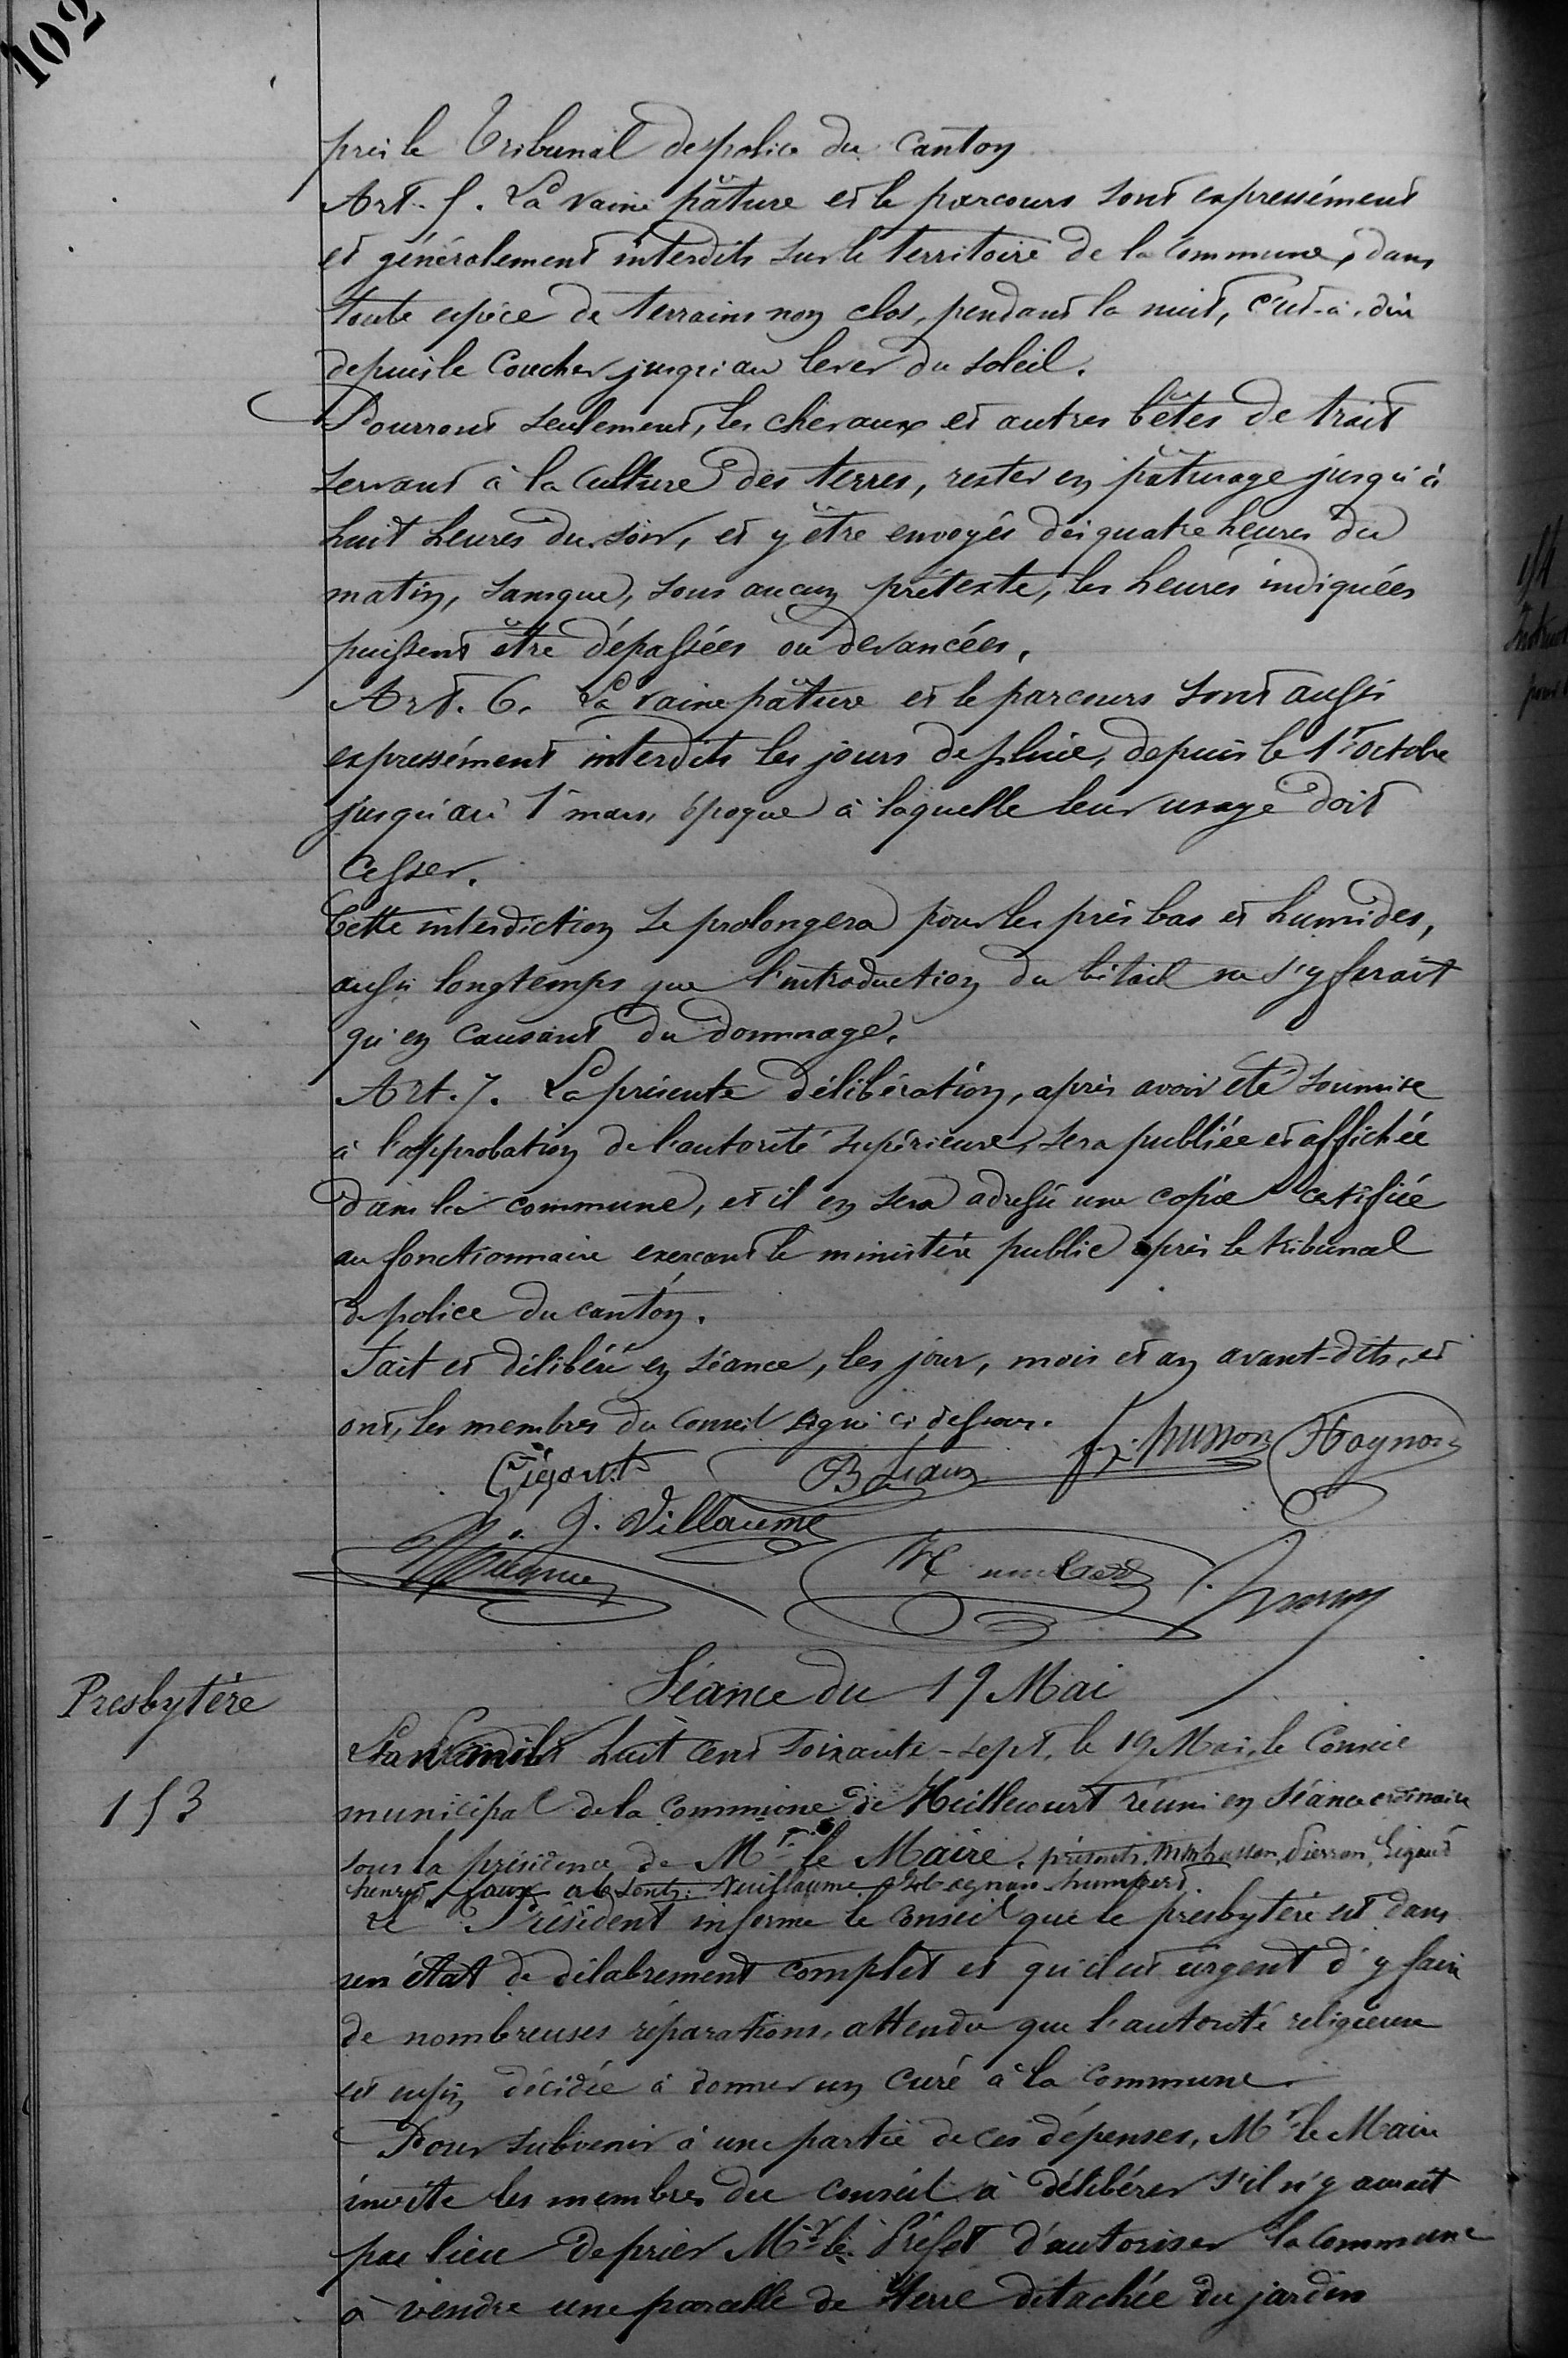 102
près le Tribunal de police du canton
Art. 5. La vaine pâture et le parcours sont expressément
et généralement interdits sur le territoire de la commune, dans
toute espèce de terrains non clos, pendant la nuit, c'est-à-dire
depuis le coucher jusqu'au lever du soleil.
Pourront seulement, les chevaux et autres bêtes de trait
servant à la culture des terres, rester en pâturage jusqu'à
huit heures du soir, et y être envoyés dès quatre heures du
matin, sans que, sous aucun prétexte, les heures indiquées
puissent être dépassées ou devancées.
Art. 6. La vaine pâture et le parcours sont aussi
expressément interdits les jours de pluie, depuis le 1er octobre
jusqu'au 1er mars, époque à laquelle leur usage doit
cesser.
Cette interdiction se prolongera pour les prés bas et humides,
aussi longtemps que l'introduction du bétail ne s'y ferait
qu'en causant du dommage.
Art. 7. La présente délibération, après avoir été soumise
à l'approbation de l'autorité supérieure, sera publiée et affichée
dans la commune, et il en sera adressé une copie certifiée
au fonctionnaire exerçant le ministère public près le tribunal
de police du canton.
Fait et délibéré en séance, les jour, mois et an avant-dits, et
ont, les membres du Conseil signé ci dessous.
Gigant
J. Villaume
Séance du 19 Mai
Presbytère
153
L'an mil huit cent soixante-sept, le 19 Mai, le Conseil
municipal de la Commune de Heillecourt réuni en séance ordinaire
sous la présidence de Mr. le Maire. présents, MM husson, Pierron, Gigant
henry, faux absents: Vuillaume humbert.
Le Président informe le conseil que le presbytère est dans
un état de délabrement complet et qu'il est urgent d'y faire
de nombreuses réparations, attendu que l'autorité religieuse
est enfin décidée à donner un curé à la commune.
Pour subvenir à une partie de ces dépenses, Mr le Maire
invite les membres du conseil à délibérer s'il n'y aurait
pas lieu de prier Mr le Préfet d'autoriser la commune
à vendre une parcelle de terre détachée du jardin